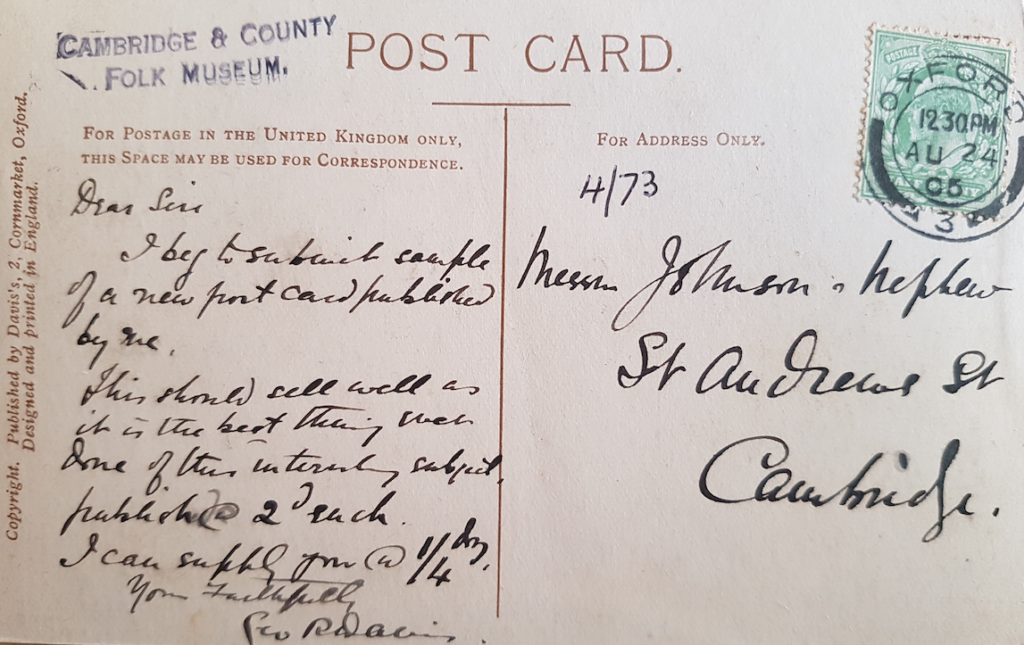 CAMBRIDGE & COUNTY
FOLK MUSEUM.
POST CARD.
FOR POSTAGE IN THE UNITED KINGDOM ONLY,
THIS SPACE MAY BE USED FOR CORRESPONDENCE.
FOR ADDRESS ONLY.
Copyright. Published by Davis's, 2, Cornmarket, Oxford.
Designed and printed in England.
Dear Sirs
I beg to submit sample
of a new post card published
by me.
This should sell well as
it is the best thing ever
done of this interesting subject.
publish @ 2d each.
I can supply you @ 1/4 doz.
Yours Faithfully
Geo R Davis.
4/73
Messrs Johnson & Nephew
St Andrews St
Cambridge.
POSTAGE
OXFORD
12.30 PM
AU 24
05